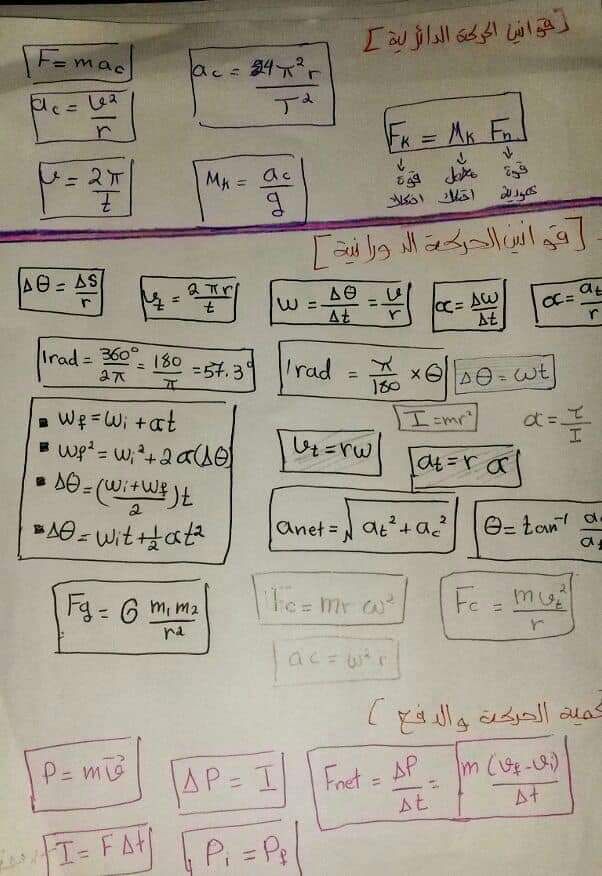 [قوانين الحركة الدائرية]
F = mac
ac = 4π²r / T²
ac = v² / r
Fk = Mk Fn
قوة احتكاك
معامل احتكاك
قوة عمودية
v = 2π / t
Mk = ac / g
[قوانين الحركة الدورانية]
Δθ = Δs / r
vt = 2πr / t
w = Δθ / Δt = v / r
α = Δw / Δt
α = at / r
1rad = 360° / 2π = 180 / π = 57.3°
1rad = π / 180 × θ
Δθ = ωt
I = mr²
α = τ / I
▪ wf = wi + αt
▪ wf² = wi² + 2α(Δθ)
▪ Δθ = (wi + wf / 2)t
▪ Δθ = wit + ½αt²
vt = rw
at = r α
anet = √at² + ac²
θ = tan⁻¹
Fg = G m₁ m₂ / r²
Fc = mr ω²
Fc = m vt² / r
ac = w² r
كمية الحركة والدفع]
P = mv⃗
ΔP = I
Fnet = ΔP / Δt = m (vf - vi) / Δt
I = F Δt
Pi = Pf